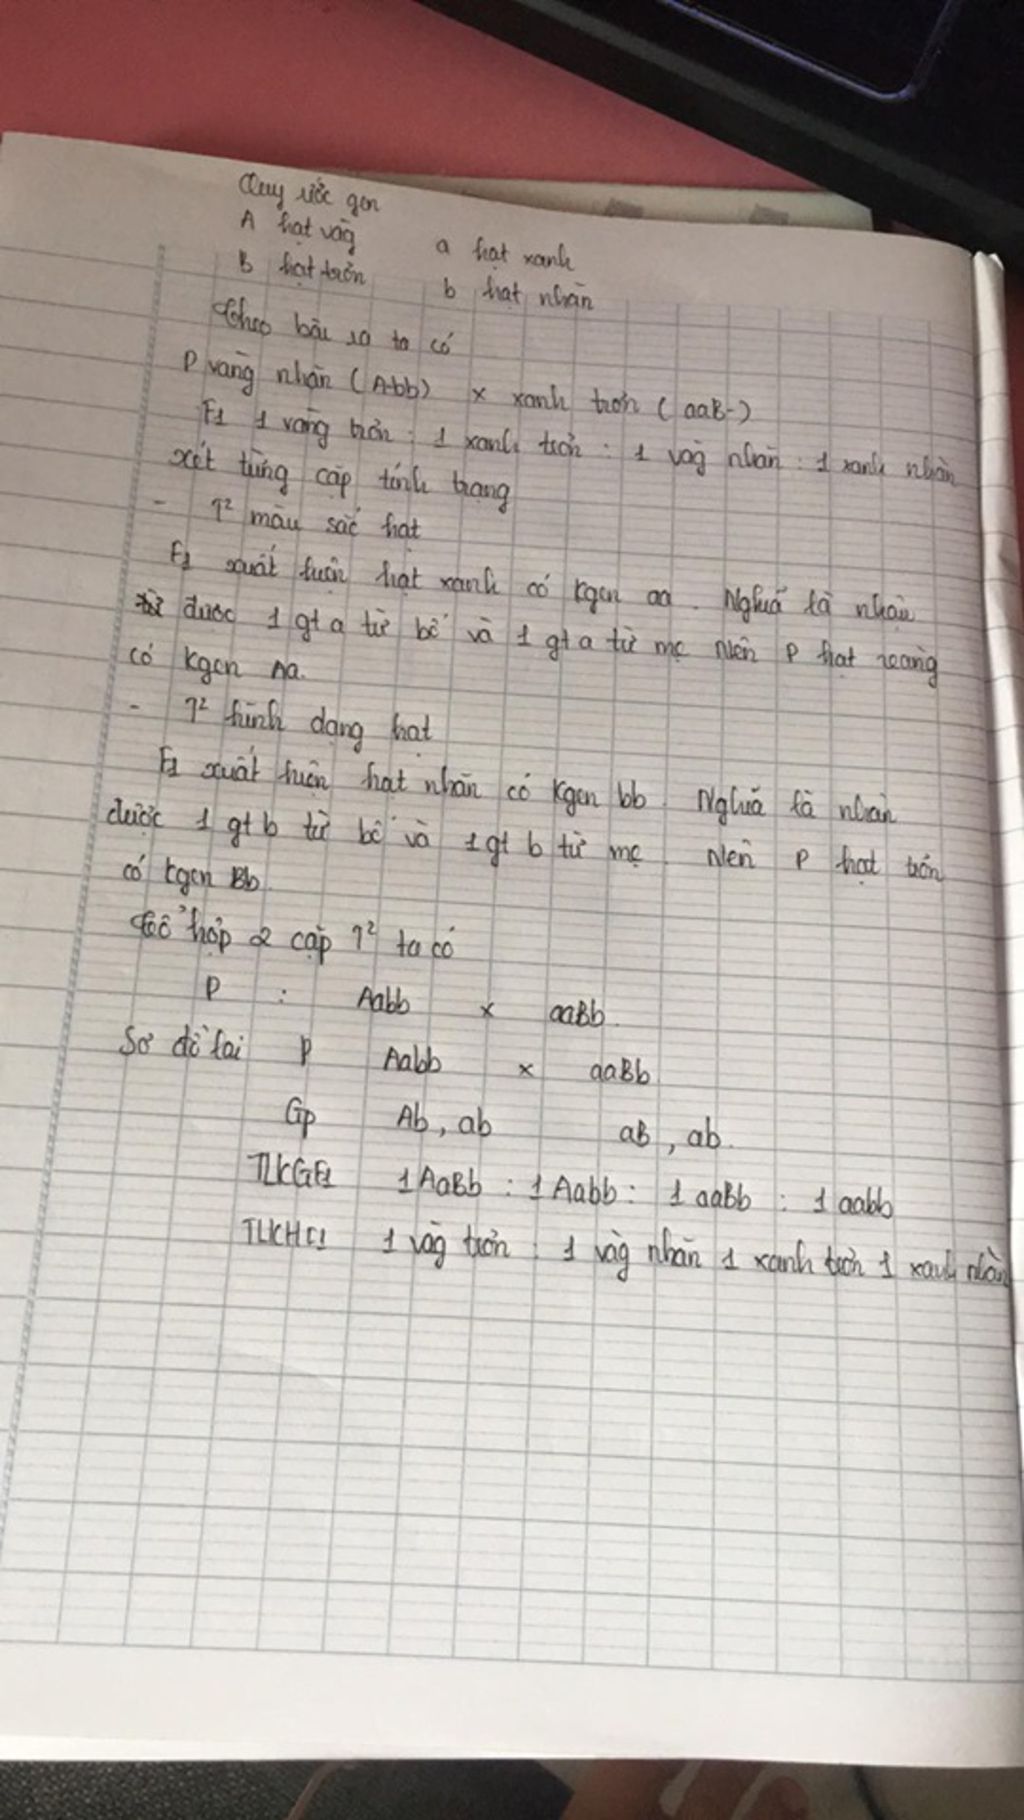 Quy ước gen
A hạt vàg a hạt xanh
B hạt trơn b hạt nhăn
Theo bài ra ta có
P vàng nhăn (A-bb) x xanh trơn (aaB-)
F1 1 vàng trơn : 1 xanh trơn : 1 vàg nhăn : 1 xanh nhăn
xét từng cặp tính trạng
- T² màu sắc hạt
F1 xuất hiện hạt xanh có kgen aa. Nghĩa là nhận
được 1 gt a từ bố và 1 gt a từ mẹ Nên P hạt vàng
có kgen Aa.
- T² hình dạng hạt
F1 xuất hiện hạt nhăn có kgen bb. Nghĩa là nhận
được 1 gt b từ bố và 1 gt b từ mẹ. Nên P hạt trơn
có kgen Bb
Tổ hợp 2 cặp T² ta có
P : Aabb x aaBb.
Sơ đồ lai P Aabb x aaBb
Gp Ab, ab aB, ab.
TLKGF1 1AaBb : 1Aabb : 1aaBb : 1 aabb
TLKHF1 1 vàg trơn : 1 vàg nhăn 1 xanh trơn 1 xanh nhăn